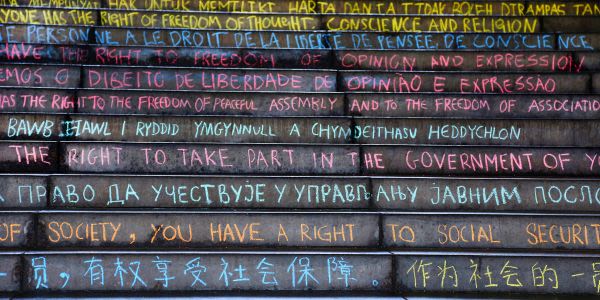 HAK UNTUK MEMILIKI HARTA DAN IA TIDAK BOLEH DIRAMPAS
YONE HAS THE RIGHT OF FREEDOM OF THOUGHT, CONSCIENCE AND RELIGION
E PERSONNE A LE DROIT DE LA LIBERTE DE PENSEE, DE CONSCIENCE
HAVE THE RIGHT TO FREEDOM OF OPINION AND EXPRESSION
EMOS O DIREITO DE LIBERDADE DE OPINIÃO E EXPRESSÃO
HAS THE RIGHT TO THE FREEDOM OF PEACEFUL ASSEMBLY AND TO THE FREEDOM OF ASSOCIATION
BAWB HAWL I RYDDID YMGYNNULL A CHYMDEITHASU HEDDYCHLON
THE RIGHT TO TAKE PART IN THE GOVERNMENT OF
ПРАВО ДА УЧЕСТВУЈЕ У УПРАВЉАЊУ ЈАВНИМ ПОСЛО
OF SOCIETY, YOU HAVE A RIGHT TO SOCIAL SECURIT
一员，有权享受社会保障。作为社会的一员